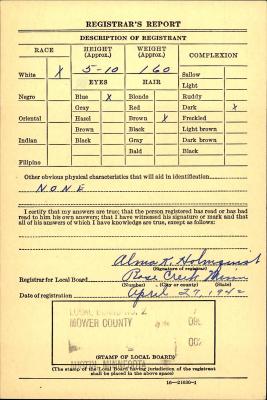 REGISTRAR'S REPORT
DESCRIPTION OF REGISTRANT
RACE HEIGHT (Approx.) WEIGHT (Approx.) COMPLEXION
White X 5-10 160 Sallow
EYES HAIR Light
Negro Blue X Blonde Ruddy
Gray Red Dark X
Oriental Hazel Brown X Freckled
Brown Black Light brown
Indian Black Gray Dark brown
Bald Black
Filipino
Other obvious physical characteristics that will aid in identification
NONE
I certify that my answers are true; that the person registered has read or has had
read to him his own answers; that I have witnessed his signature or mark and that
all of his answers of which I have knowledge are true, except as follows:
Alma K. Holmquist
(Signature of registrar)
Registrar for Local Board Rose Creek Minn
(Number) (City or county) (State)
Date of registration April 27, 1942
LOCAL BOARD NO. 2
MOWER COUNTY
AUSTIN, MINNESOTA
(STAMP OF LOCAL BOARD)
(The stamp of the Local Board having jurisdiction of the registrant
shall be placed in the above space)
16—21630-1